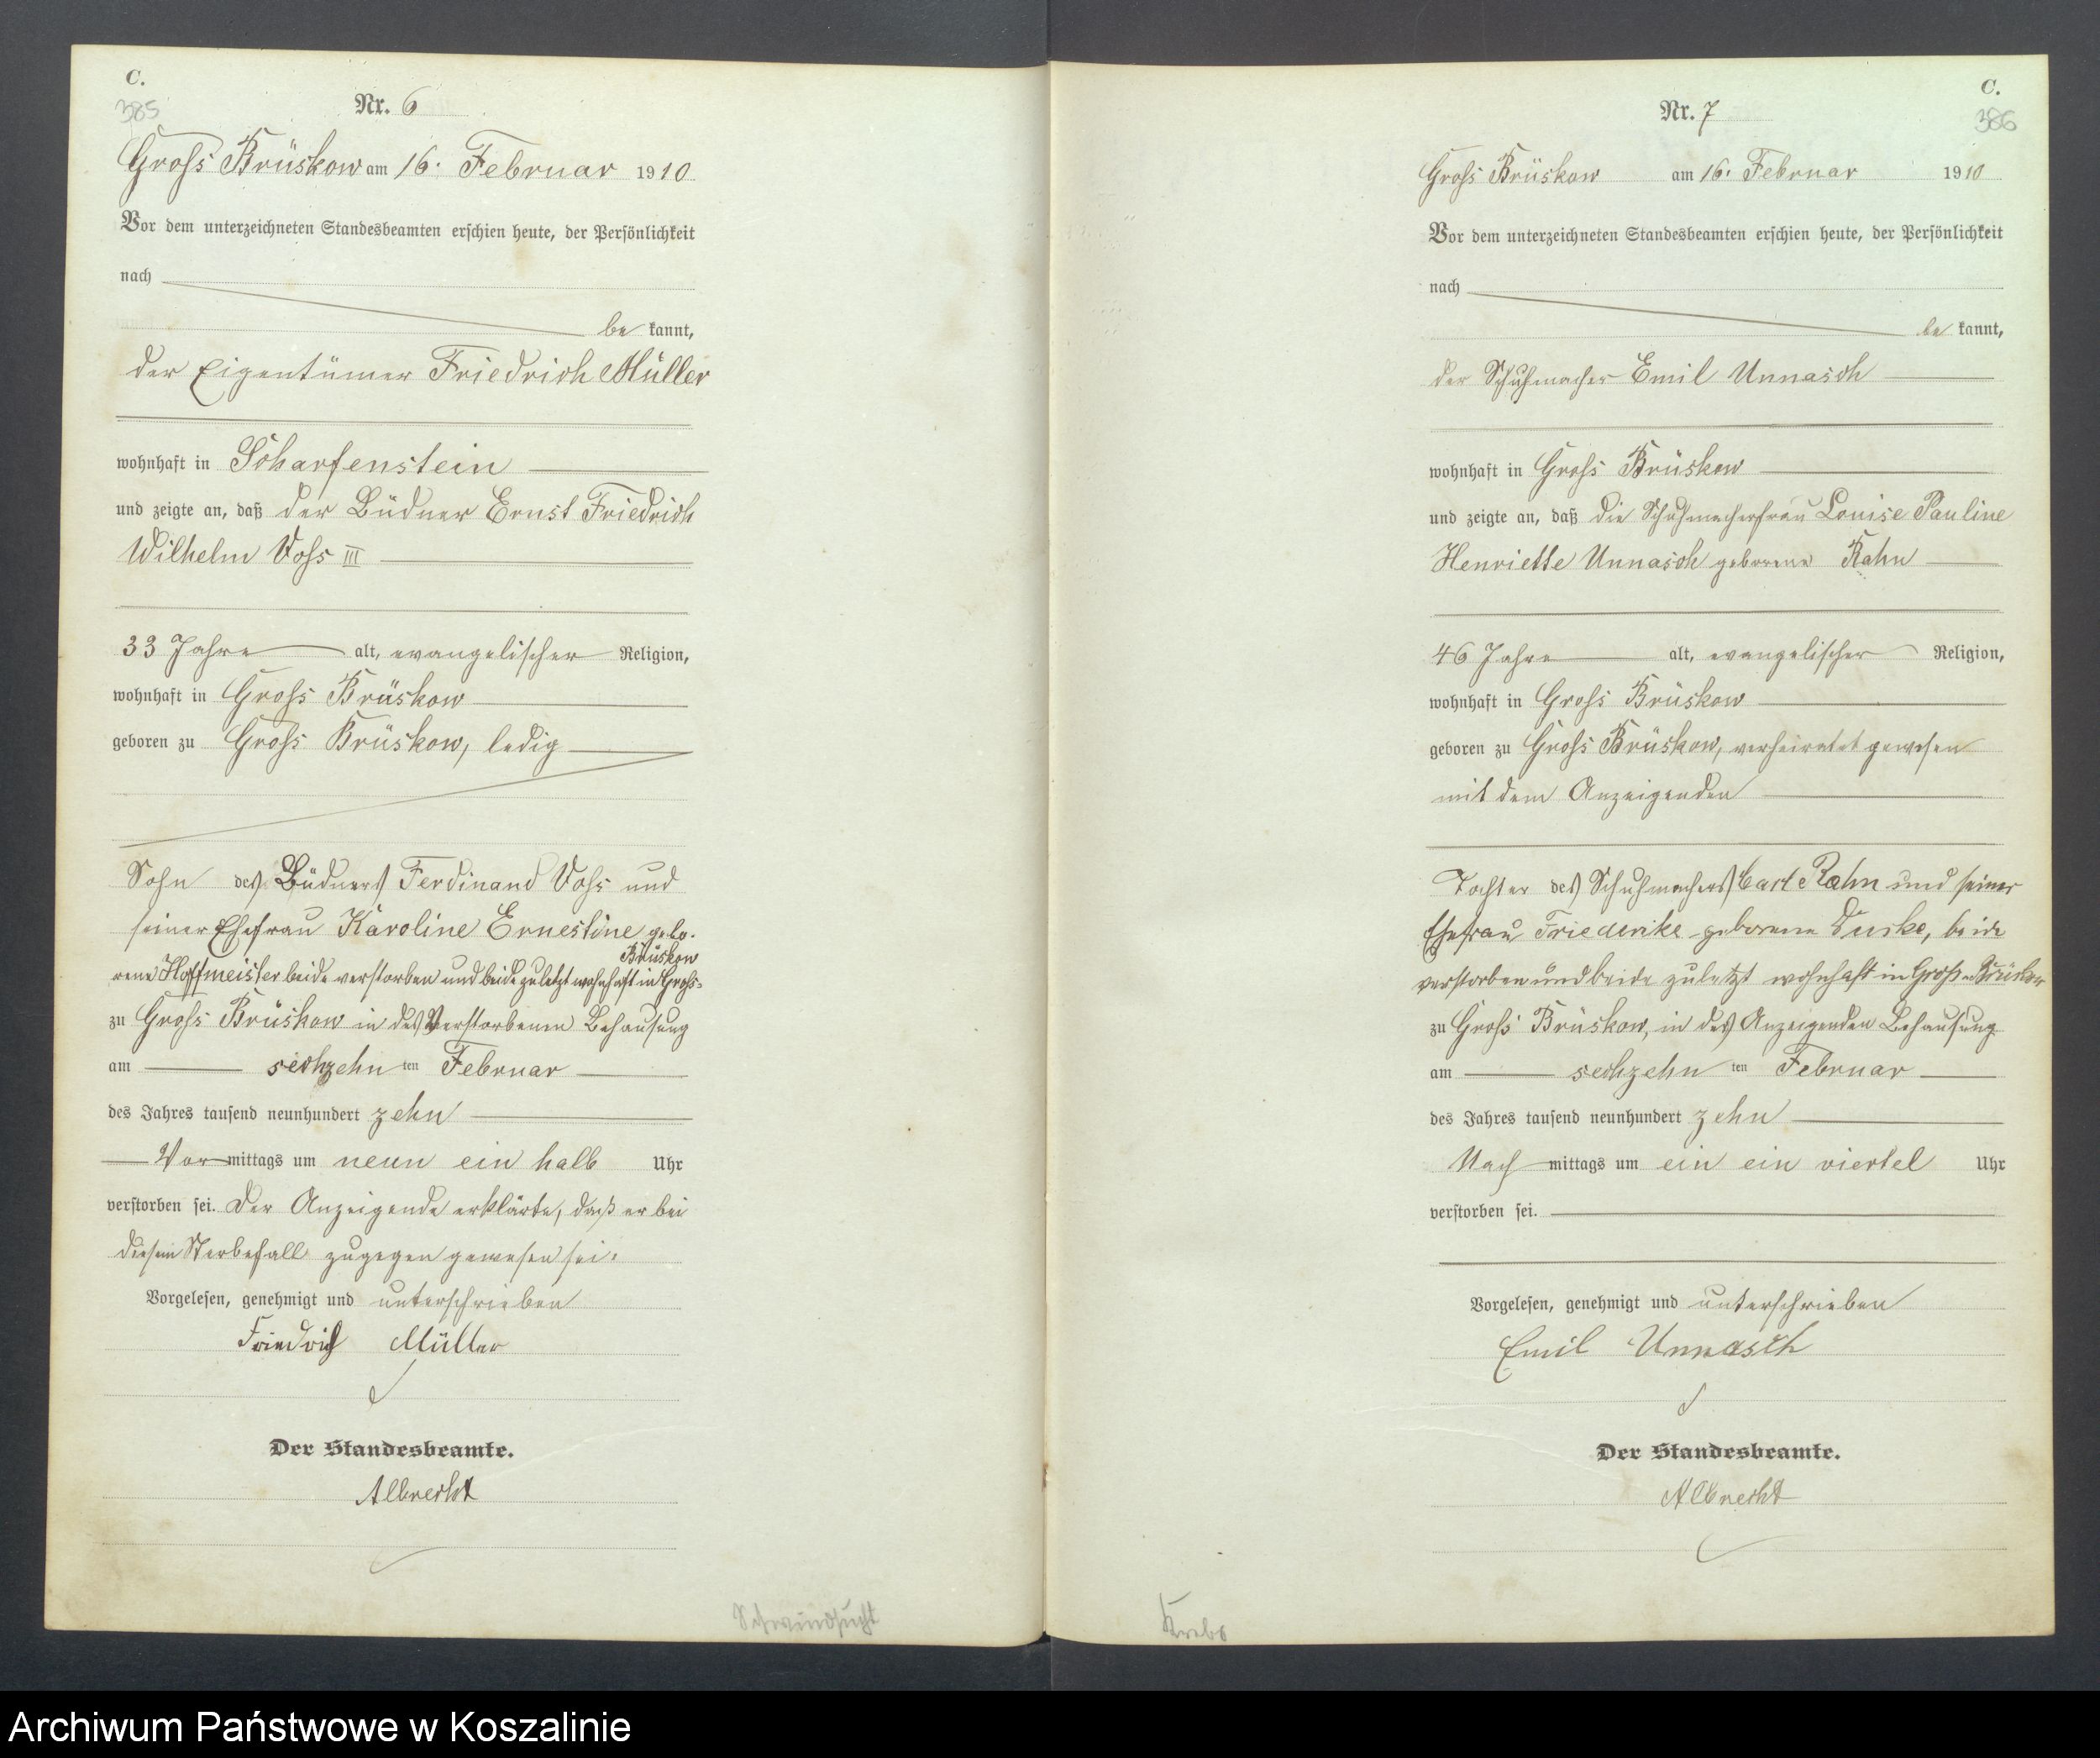 C.
385
Nr. 6
Groß Brüskow am 16. Februar 1910
Vor dem unterzeichneten Standesbeamten erschien heute, der Persönlichkeit
nach
be kannt,
der Eigentümer Friedrich Müller
wohnhaft in Scharfenstein
und zeigte an, daß der Büdner Ernst Friedrich
Wilhelm Voß III
33 Jahre alt, evangelischer Religion,
wohnhaft in Groß Brüskow
geboren zu Groß Brüskow, ledig
Sohn des Büdners Ferdinand Voß und
seiner Ehefrau Karoline Ernestine gebo-
rene Hoffmeister beide verstorben und beide zuletzt wohnhaft in Groß-Brüskow
zu Groß Brüskow in des Verstorbenen Behausung
am sechzehn ten Februar
des Jahres tausend neunhundert zehn
Vor mittags um neun ein halb Uhr
verstorben sei. Der Anzeigende erklärte, daß er bei
diesem Sterbefall zugegen gewesen sei.
Vorgelesen, genehmigt und unterschrieben
Friedrich Müller
Der Standesbeamte.
Albrecht
Schwindsucht
C.
386
Nr. 7
Groß Brüskow am 16. Februar 1910
Vor dem unterzeichneten Standesbeamten erschien heute, der Persönlichkeit
nach
be kannt,
der Schuhmacher Emil Unnasch
wohnhaft in Groß Brüskow
und zeigte an, daß die Schuhmacherfrau Louise Pauline
Henriette Unnasch geborene Rahn
46 Jahre alt, evangelischer Religion,
wohnhaft in Groß Brüskow
geboren zu Groß Brüskow, verheiratet gewesen
mit dem Anzeigenden
Tochter des Schuhmachers Carl Rahn und seiner
Ehefrau Friederike geborene beide
verstorben und beide zuletzt wohnhaft in Groß-Brüskow
zu Groß Brüskow, in des Anzeigenden Behausung
am sechzehn ten Februar
des Jahres tausend neunhundert zehn
Nach mittags um ein ein viertel Uhr
verstorben sei.
Vorgelesen, genehmigt und unterschrieben
Emil Unnasch
Der Standesbeamte.
Albrecht
Krebs
Archiwum Państwowe w Koszalinie